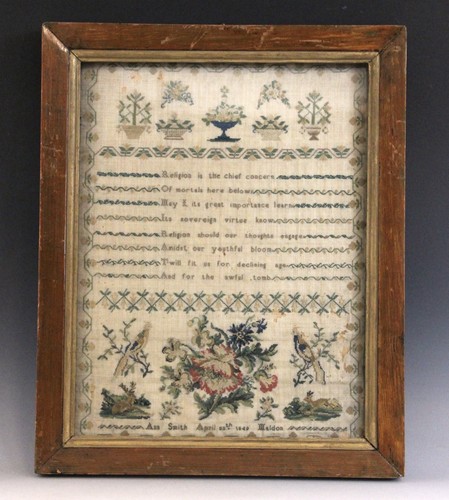 Religion is the chief concern
Of mortals here below
May I its great importance learn
Its sovereign virtue know
Religion should our thoughts engage
Amidst our youthful bloom
Twill fit us for declining age
And for the awful tomb
Ann Smith April Maldon